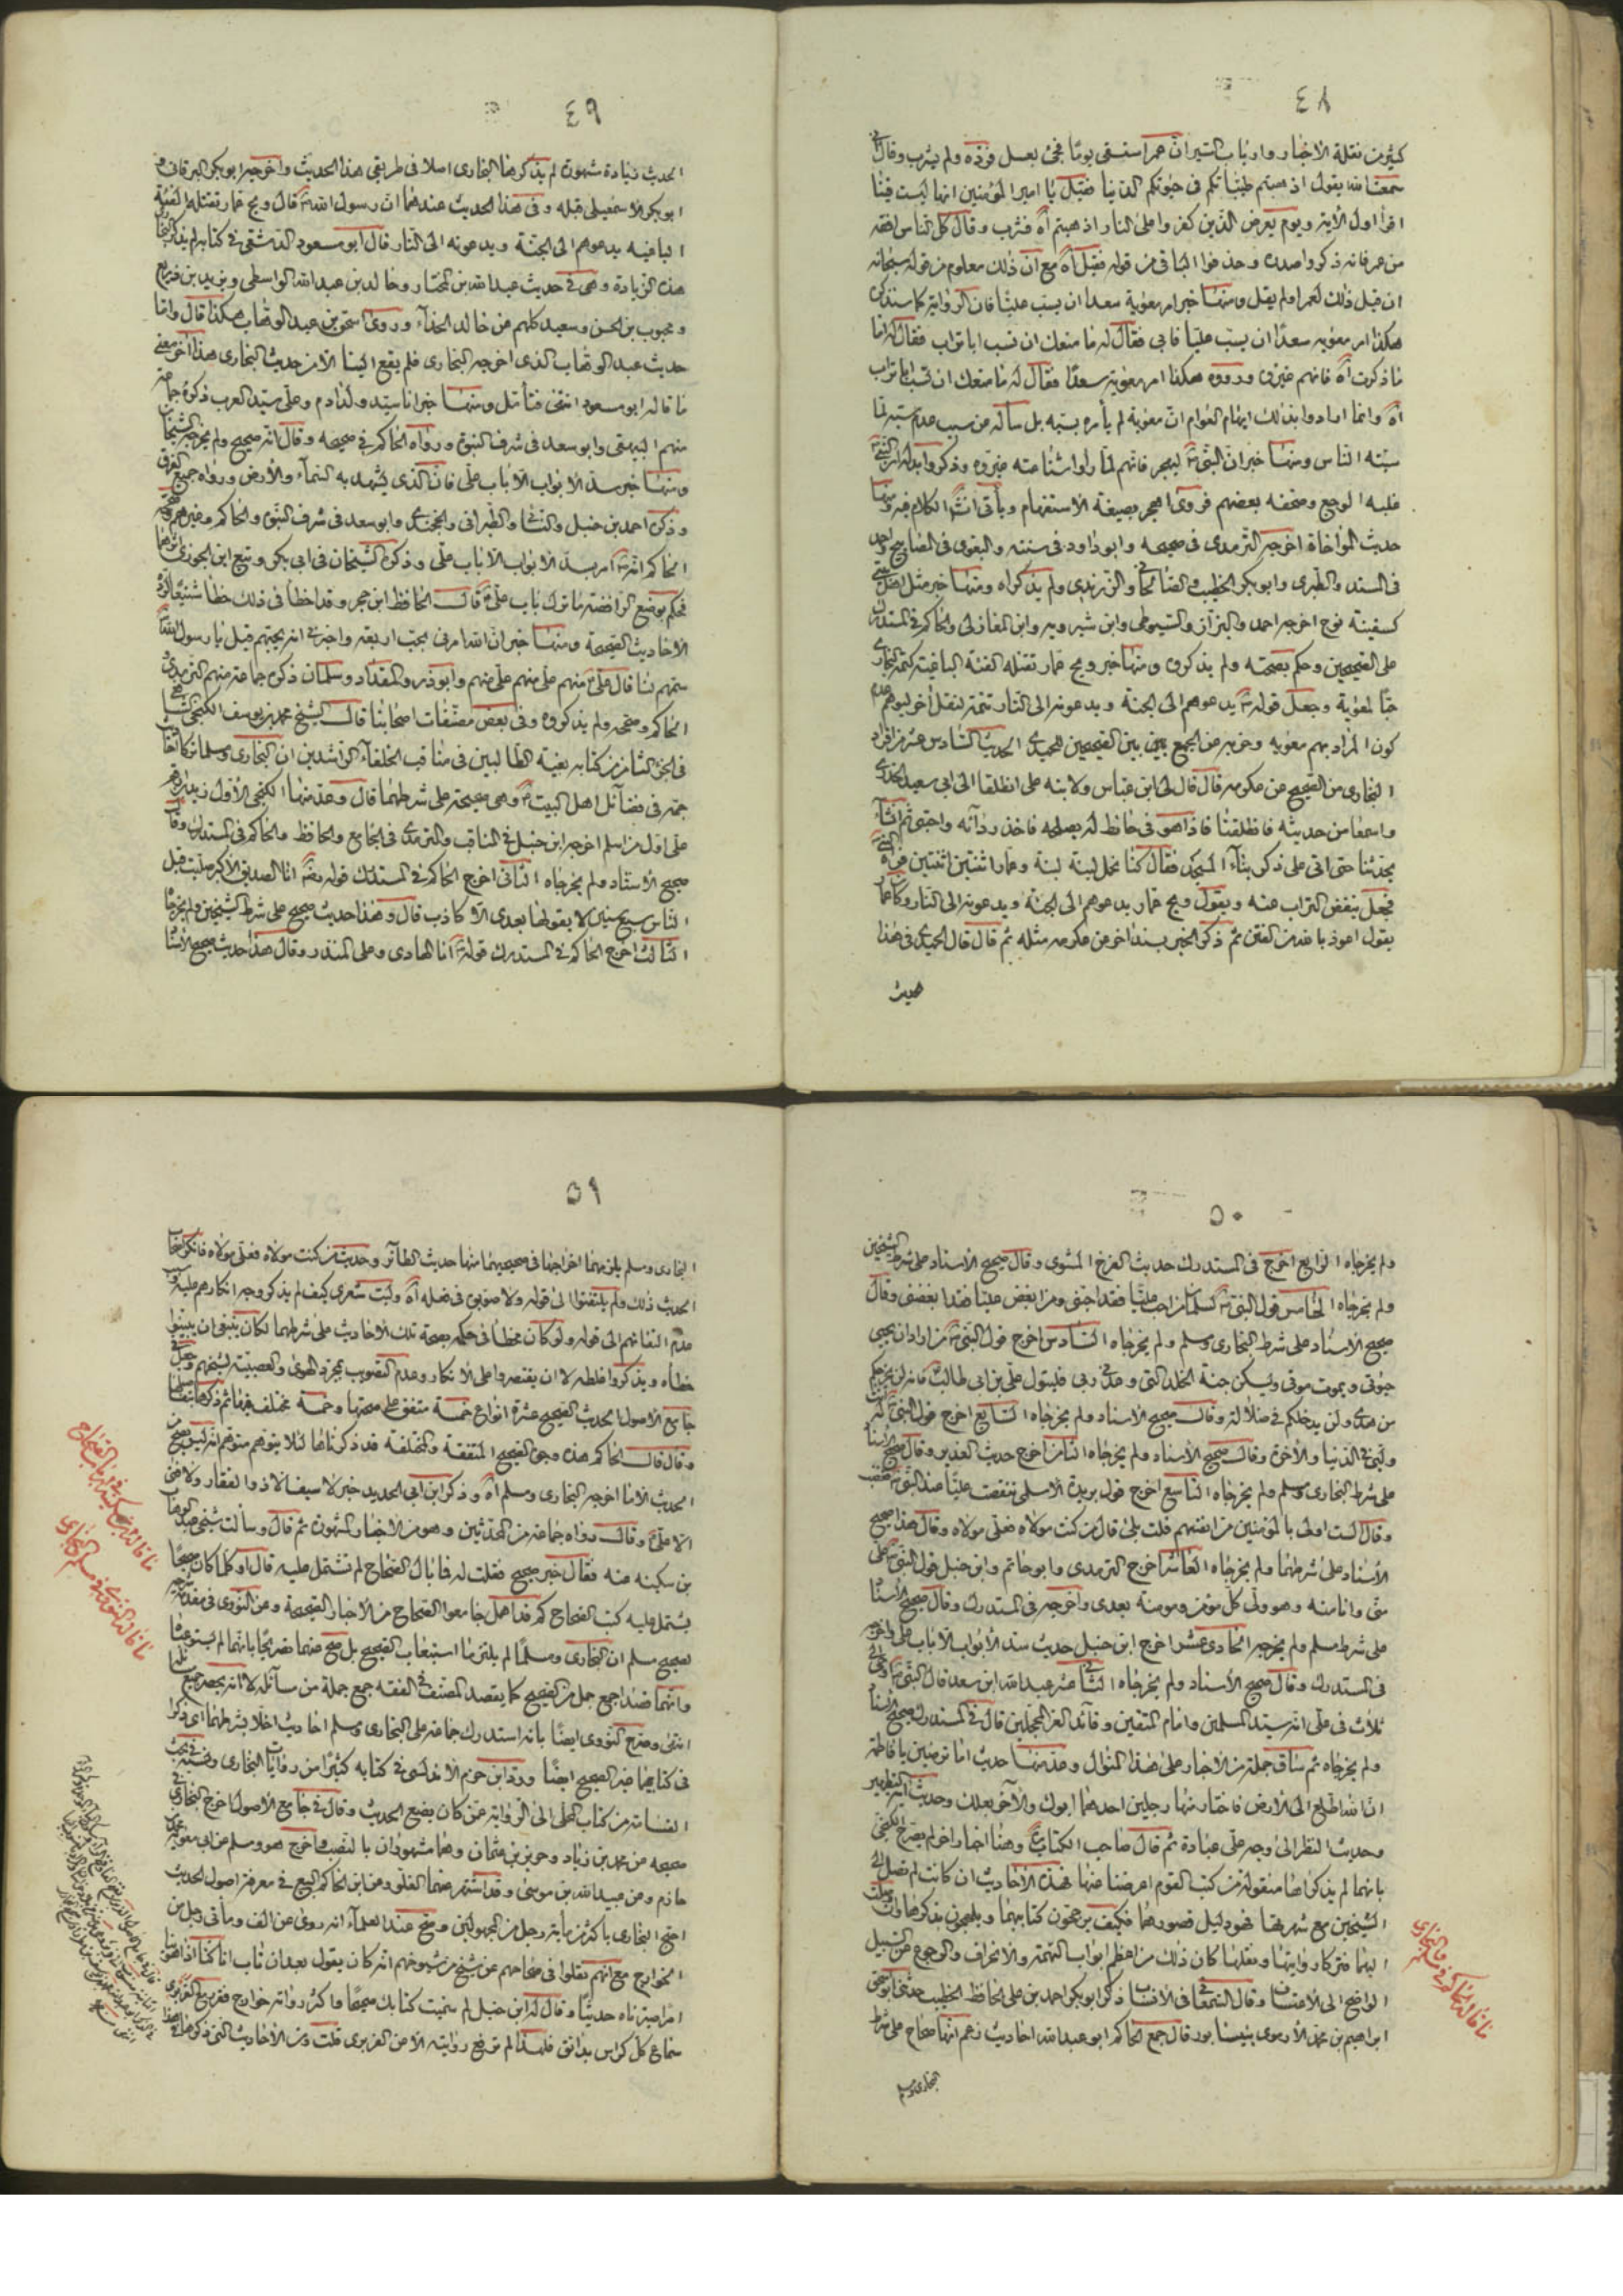 ٤٨
كثير من نقلة الأخبار وارباب السير ان عمر استسقى يوما فجئ بعسل فرده ولم يشرب وقال
سمعنا الله يقول اذهبتم طيباتكم فى حيوتكم الدنيا فقيل يا امير المؤمنين انها ليست فينا
اقرأ اول الآية ويوم يعرض الذين كفروا على النار اذهبتم آه فشرب وقال كل الناس افقه
من عمر فانه ذكروا صدره وحذفوا الباقى من قوله فقيل آه مع ان ذلك معلوم من قوله سبحانه
ان قيل ذلك لعمر اولم يقل ومنها خبر امر معوية سعدا ان يسب عليا فان الرواية كما ستذكر
هكذا امر معوية سعدًا ان يسب عليا فابى فقال له ما منعك ان تسب ابا تراب فقال له اما
ما ذكرت آه فانهم غيروه ورووه هكذا امر معوية سعدًا فقال له ما منعك ان تسب ابا تراب
آه وانما ارادوا بذلك ايهام العوام ان معوية لم يأمره بسبه بل سأله عن سبب عدم سبه لما
سبته الناس ومنها خبر ان النبى ليهجر فانهم لما رأوا شناعته غيروه وذكروا بدله
غلبه الوجع وصحفه بعضهم فروى اهجر بصيغة الاستفهام ويأتى الكلام فيه ومنها
حديث المؤاخاة اخرجه الترمذى فى صحيحه وابو داود فى سننه والبغوى فى المصابيح واحمد
فى المسند والطبرى وابو بكر الخطيب والزرندى ولم يذكراه ومنها خبر مثل اهل بيتى
كسفينة نوح اخرجه احمد والبزاز والسيوطى وابن شيرويه وابن المغازلى والحاكم فى المستدرك
على الصحيحين وحكم بصحته ولم يذكروه ومنها خبر ويح عمار تقتله الفئة الباغية كتمه البخارى
حبا لمعوية وجعل قوله يدعوهم الى الجنة ويدعونه الى النار تتمة لنقل اخر ليوهم عدم
كون المراد بهم معوية وحزبه عن الجمع بين الصحيحين للحميدى الحديث السادس عشر من افراد
البخارى من الصحيح عن عكرمه قال قال لى ابن عباس ولابنه على انطلقا الى ابى سعيد الخدرى
واسمعا من حديثه فانطلقنا فاذا هو فى حائط له يصلحه فاخذ رداءه واحتبى ثم انشأ
يحدثنا حتى اتى على ذكر بناء المسجد فقال كنا نحمل لبنة لبنة وعمار لبنتين لبنتين
فجعل ينفض التراب عنه ويقول ويح عمار يدعوهم الى الجنة ويدعونه الى النار وكان عمار
يقول اعوذ بالله من الفتن ثم ذكر الخبر بسند اخر عن عكرمه مثله ثم قال قال الحميدى فى هذا
٤٩
الحديث زيادة مشهورة لم يذكرها البخارى اصلا فى طريقى هذا الحديث واخرجه ابو بكر البرقانى و
ابو بكر الاسمعيلى قبله وفى هذا الحديث عندهما ان رسول الله قال ويح عمار تقتله الفئة
الباغيه يدعوهم الى الجنة ويدعونه الى النار قال ابو مسعود الدمشقى فى كتابه لم يذكر البخارى
هذه الزيادة وهى فى حديث عبد الله بن المختار وخالد بن عبد الله الواسطى ويزيد بن زريع
ومحبوب بن الحسن وسعيد كلهم عن خالد الحذاء وروى اسحق بن عبد الوهاب هكذا قال واما
حديث عبد الوهاب الذى اخرجه البخارى فلم يقع الينا الا من حديث البخارى هذا آخر معنى
ما قاله ابو مسعود انتهى فتأمل ومنها خبر انا سيد ولد آدم وعلى سيد العرب ذكره جماعة
منهم البيهقى وابو سعد فى شرف النبوة ورواه الحاكم فى صحيحه وقال انه صحيح ولم يخرجه الشيخان
ومنها خبر سد الابواب الا باب على فان الذى يشهد به السماء والأرض ورواه جميع الفرق
وذكره احمد بن حنبل والنسائى والطبرانى والخجندى وابو سعد فى شرف النبوة والحاكم وغيرهم
الحاكم انه امر بسد الابواب الا باب على وذكره الشيخان فى ابى بكر وتبع ابن الجوزى
فحكم بوضع الرافضة ما ترك باب على قال الحافظ ابن حجر وقد اخطأ فى ذلك خطأ شنيعا لرده
الاحاديث الصحيحة ومنها خبر ان الله امرنى بحب اربعة واخبرنى انه يحبهم قيل يا رسول الله
سمهم لنا قال على منهم على منهم على منهم وابو ذر والمقداد وسلمان ذكره جماعة منهم الترمذى و
الحاكم وصححه ولم يذكروه وفى بعض مصنفات اصحابنا قال الشيخ محمد بن يوسف الكنجى الشافعى
فى الجزء الثامن من كتابه بغية الطالبين فى مناقب الخلفاء الراشدين ان البخارى ومسلما تركا
جمة فى فضائل اهل البيت وهى صحيحة على شرطهما قال وعد منها الكنجى الأول
على اول من اسلم اخرجه ابن حنبل فى المناقب والترمذى فى الجامع والحافظ والحاكم فى المستدرك وقال
صحيح الاسناد ولم يخرجاه الثانى اخرج الحاكم فى المستدرك قوله انا الصديق الاكبر صليت قبل
الناس سبع سنين لا يقولها بعدى الا كاذب قال وهذا حديث صحيح على شرط الشيخين ولم يخرجاه
الثالث اخرج الحاكم فى المستدرك قوله انا الهادى وعلى المنذر وقال هذا حديث صحيح الاسناد
٥٠
ولم يخرجاه الرابع اخرج فى المستدرك حديث الفرخ المشوى وقال صحيح الاسناد على شرط الشيخين
ولم يخرجاه الخامس قول النبى لسلمان من احب عليا فقد احبنى ومن ابغض عليا فقد ابغضنى وقال
صحيح الاسناد على شرط البخارى ومسلم ولم يخرجاه السادس اخرج قول النبى من اراد ان يحيى
حيوتى ويموت موتى ويسكن جنة الخلد التى وعدنى ربى فليتول على بن ابى طالب فانه لن يخرجكم
من هدى ولن يدخلكم فى ضلالة وقال صحيح الاسناد ولم يخرجاه السابع اخرج قول النبى انت
وليى فى الدنيا والآخرة وقال صحيح الاسناد ولم يخرجاه الثامن اخرج حديث الغدير وقال صحيح الاسناد
على شرط البخارى ومسلم ولم يخرجاه التاسع اخرج قول بريدة الاسلمى تنقصت عليا عند النبى فغضب
وقال الست اولى بالمؤمنين من انفسهم قلت بلى قال من كنت مولاه فعلى مولاه وقال هذا صحيح
الاسناد على شرطهما ولم يخرجاه العاشر اخرج الترمذى وابو حاتم وابن حنبل قول النبى على
منى وانا منه وهو ولى كل مؤمن ومؤمنة بعدى واخرجه فى المستدرك وقال صحيح الاسناد
على شرط مسلم ولم يخرجه الحادى عشر اخرج ابن حنبل حديث سد الأبواب الا باب على واخرجه
فى المستدرك وقال صحيح الاسناد ولم يخرجاه الثانى عشر عبد الله ابن سعد قال النبى اوحى الى
ثلاث فى على انه سيد المسلمين وامام المتقين وقائد الغر المحجلين قال فى المستدرك صحيح الاسناد
ولم يخرجاه ثم ساق جملة من الاخبار على هذا المنوال وعد منها حديث اما ترضين يا فاطمة
ان الله اطلع الى الارض فاختار منها رجلين احدهما ابوك والآخر بعلك وحديث آية التطهير
وحديث النظر الى وجه على عبادة ثم قال صاحب الكتاب وهنا اخبار اخر لم يصرح الكنجى
بانهما لم يذكراها منقولة من كتب القوم اعرضنا عنها فهذه الاحاديث ان كانت لم تصل الى
الشيخين مع شهرتها فهو دليل قصورهما فكيف يرجحون كتابيهما ويلهجون بذكرهما وان وصلت
اليهما فتركا روايتها ونقلها كان ذلك من اعظم ابواب التهمة والانحراف والرجوع عن السبيل
الواضح الى الاعتساف وقال السمعانى فى الانساب ذكر ابو بكر احمد بن على الحافظ الخطيب حدثنى ابو اسحق
ابراهيم بن محمد الأرموى بنيسابور قال جمع الحاكم ابو عبد الله احاديث زعم انها صحاح على شرط
البخارى ومسلم
٥١
البخارى ومسلم يلزمهما اخراجها فى صحيحيهما منها حديث الطائر وحديث من كنت مولاه فعلى مولاه فانكر اصحاب
الحديث ذلك ولم يلتفتوا الى قوله ولا صوبوه فى فعله آه وليت شعرى كيف لم يذكر وجه انكارهم عليه و
عدم التفاتهم الى قوله ولو كان مخطأ فى حكمه بصحة تلك الاحاديث على شرطهما لكان ينبغى ان يبينوا
خطأه ويذكروا غلطه لا ان يقتصروا على الانكار وعدم التصويب بمجرد الهوى والعصبية لشيخهم وجعل فى
جامع الاصول الحديث الصحيح عشرة انواع خمسة متفق على صحتها وخمسة مختلف فيها ثم ذكرها
وقال قال الحاكم هذه وجوه الصحيح المتفقة والمختلفة قد ذكرناها لئلا يتوهم متوهم انه ليس يصح من
الحديث الا ما اخرجه البخارى ومسلم آه وذكر ابن ابى الحديد خبر لا سيف الا ذو الفقار ولا فتى
الا على وقال رواه جماعة من المحدثين وهو من الاخبار المشهورة ثم قال وسألت شيخى عبد الوهاب
بن سكينه عنه فقال خبر صحيح فقلت له فما بال الصحاح لم تشتمل عليه قال او كلما كان صحيحا
يشتمل عليه كتب الصحاح كم قد اهمل جامعوا الصحاح من الاخبار الصحيحة وعن النووى فى مقدمة
لصحيح مسلم ان البخارى ومسلما لم يلتزما استيعاب الصحيح بل صح عنهما تصريحا بانهما لم يستوعباه
وانما قصدا جمع جمل من الصحيح كما يقصد المصنف فى الفقه جمع جملة من مسائله لا انه يحصر جميع مسائله
انتهى وصرح النووى ايضا بانه استدرك جماعة على البخارى ومسلم احاديث اخلا بشرطهما اى ذكرا
فى كتابيهما غير الصحيح ايضًا ورد ابن حزم الاندلسى فى كتابه كثيرًا من روايات البخارى
القسامة من كتاب المحلى الى الرواية عمن كان يضع الحديث وقال فى جامع الأصول اخرج البخارى فى
صحيحه عن محمد بن زياد وحريز بن عثمان وهما مشهوران بالنصب واخرج هو ومسلم عن ابى معوية
حازم وعن عبيد الله بن موسى وقد اشتهر عنهما الغلو وعن ابن الحاكم البيع فى معرفة اصول الحديث
احتج البخارى باكثر من مائة رجل من المجهولين وصح عند العلماء انه روى عن الف ومأتى رجل من
الخوارج مع انهم نقلوا فى صحاحهم عن شيخ من شيوخهم انه كان يقول بعد ان تاب انا كنا اذا هوينا
امرا صيرناه حديثا وقال له ابن حنبل لم سميت كتابك صحيحا واكثر رواته خوارج
سماع كل كراس بدانق فلهذا لم ترفع روايته الا من الفربرى قلت ومن الأحاديث التى ذكرها